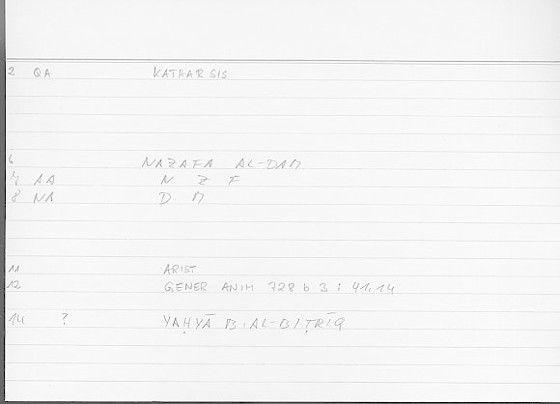 2 QA KATHARSIS
6 NAZAFA AL-DAM
7 AA N Z F
8 NA D M
11 ARIST
12 GENER ANIM 728 b 3 : 41.14
14 ? YAḤYĀ B. AL-BIṬRĪQ